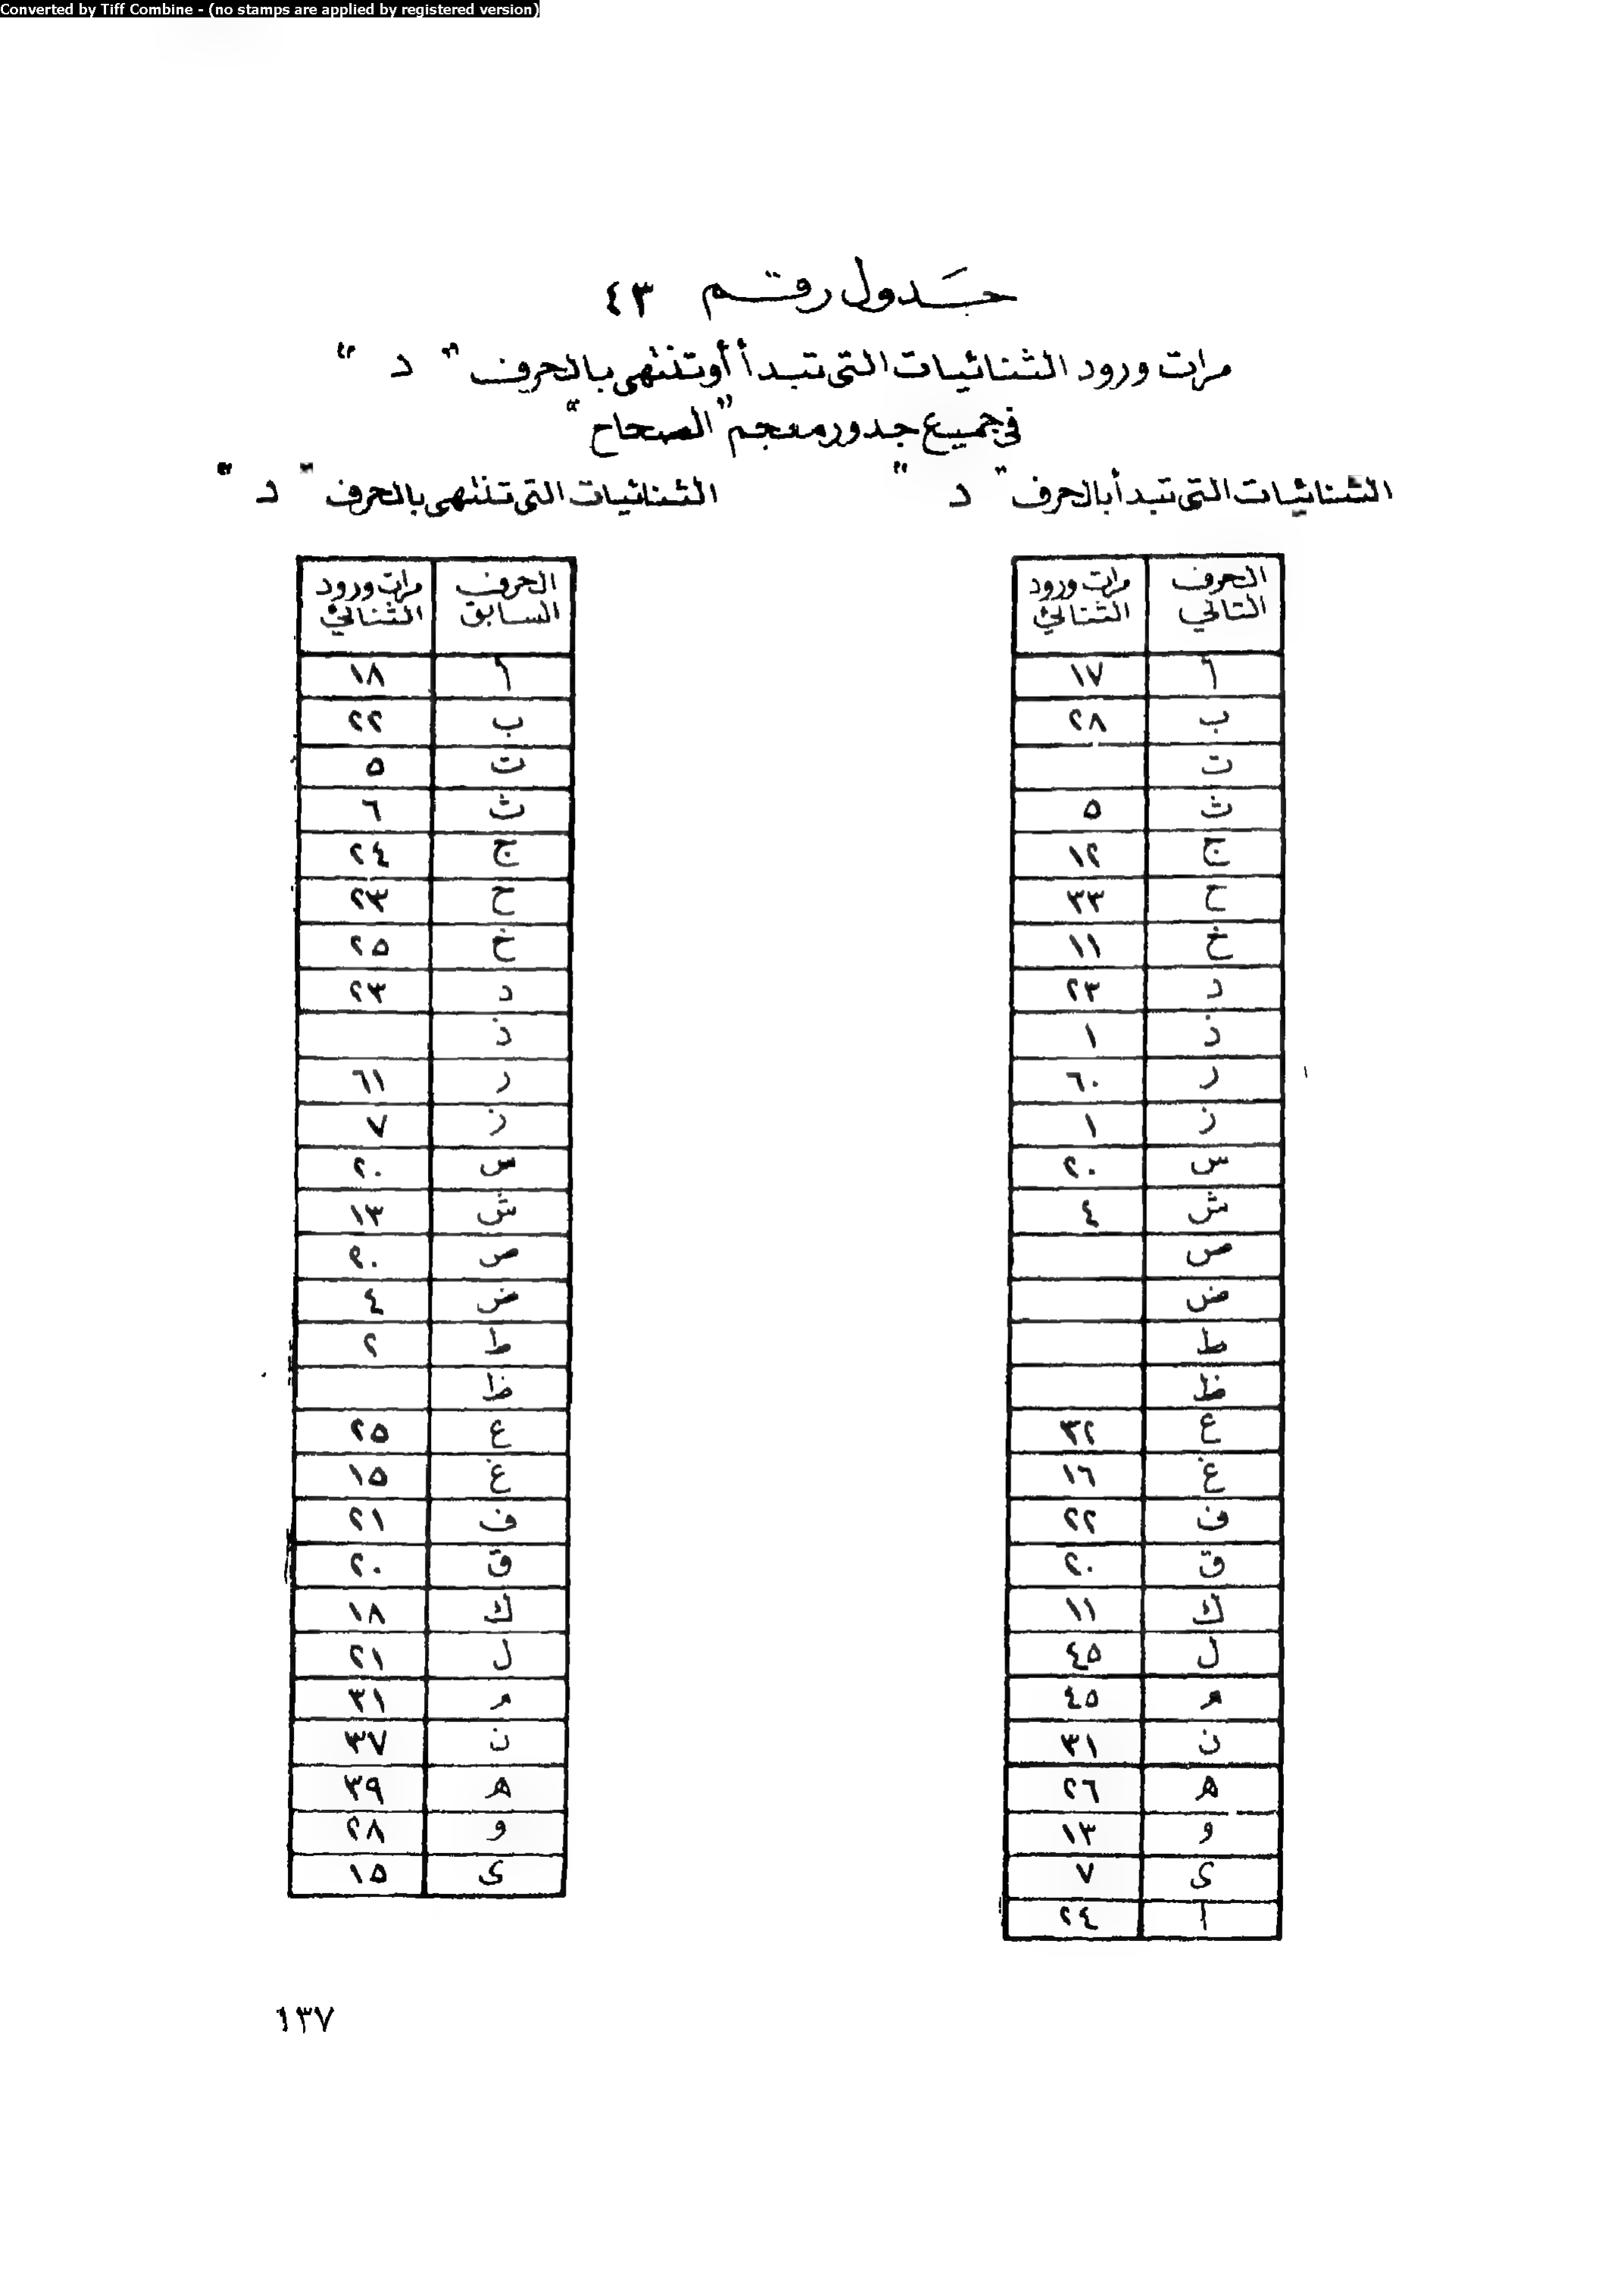 Converted by Tiff Combine - (no stamps are applied by registered version)
جَدول رقم ٤٣
مرات ورود الثنائيات التى تبدأ أو تنتهى بالحرف " د "
فى جميع جدور معجم "الصحاح"
الثنائيات التى تبدأ بالحرف " د "
الحرف التالي مرات ورود الثنائي
أ ١٧
ب ٢٨
ت
ث ٥
ج ١٢
ح ٣٣
خ ١١
د ٢٣
ذ ١
ر ٦٠
ز ١
س ٢٠
ش ٤
ص
ض
ط
ظ
ع ٣٢
غ ١٦
ف ٢٢
ق ٢٠
ك ١١
ل ٤٥
م ٤٥
ن ٣١
ه ٢٦
و ١٣
ى ٧
ا ٢٤
الثنائيات التى تنتهى بالحرف " د "
الحرف السابق مرات ورود الثنائي
أ ١٨
ب ٢٢
ت ٥
ث ٦
ج ٢٤
ح ٢٣
خ ٢٥
د ٢٣
ذ
ر ٦١
ز ٧
س ٢٠
ش ١٣
ص ٢٠
ض ٤
ط ٢
ظ
ع ٢٥
غ ١٥
ف ٢١
ق ٢٠
ك ١٨
ل ٢١
م ٣١
ن ٣٧
ه ٣٩
و ٢٨
ى ١٥
١٣٧